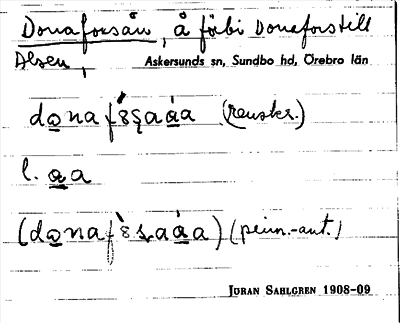 Donaforsån, å förbi Donafors till
Alsen,
Askersunds sn, Sundbo hd, Örebro län
(renskr.)
l. a̲a
(prim.-ant.)
JÖRAN SAHLGREN 1908-09